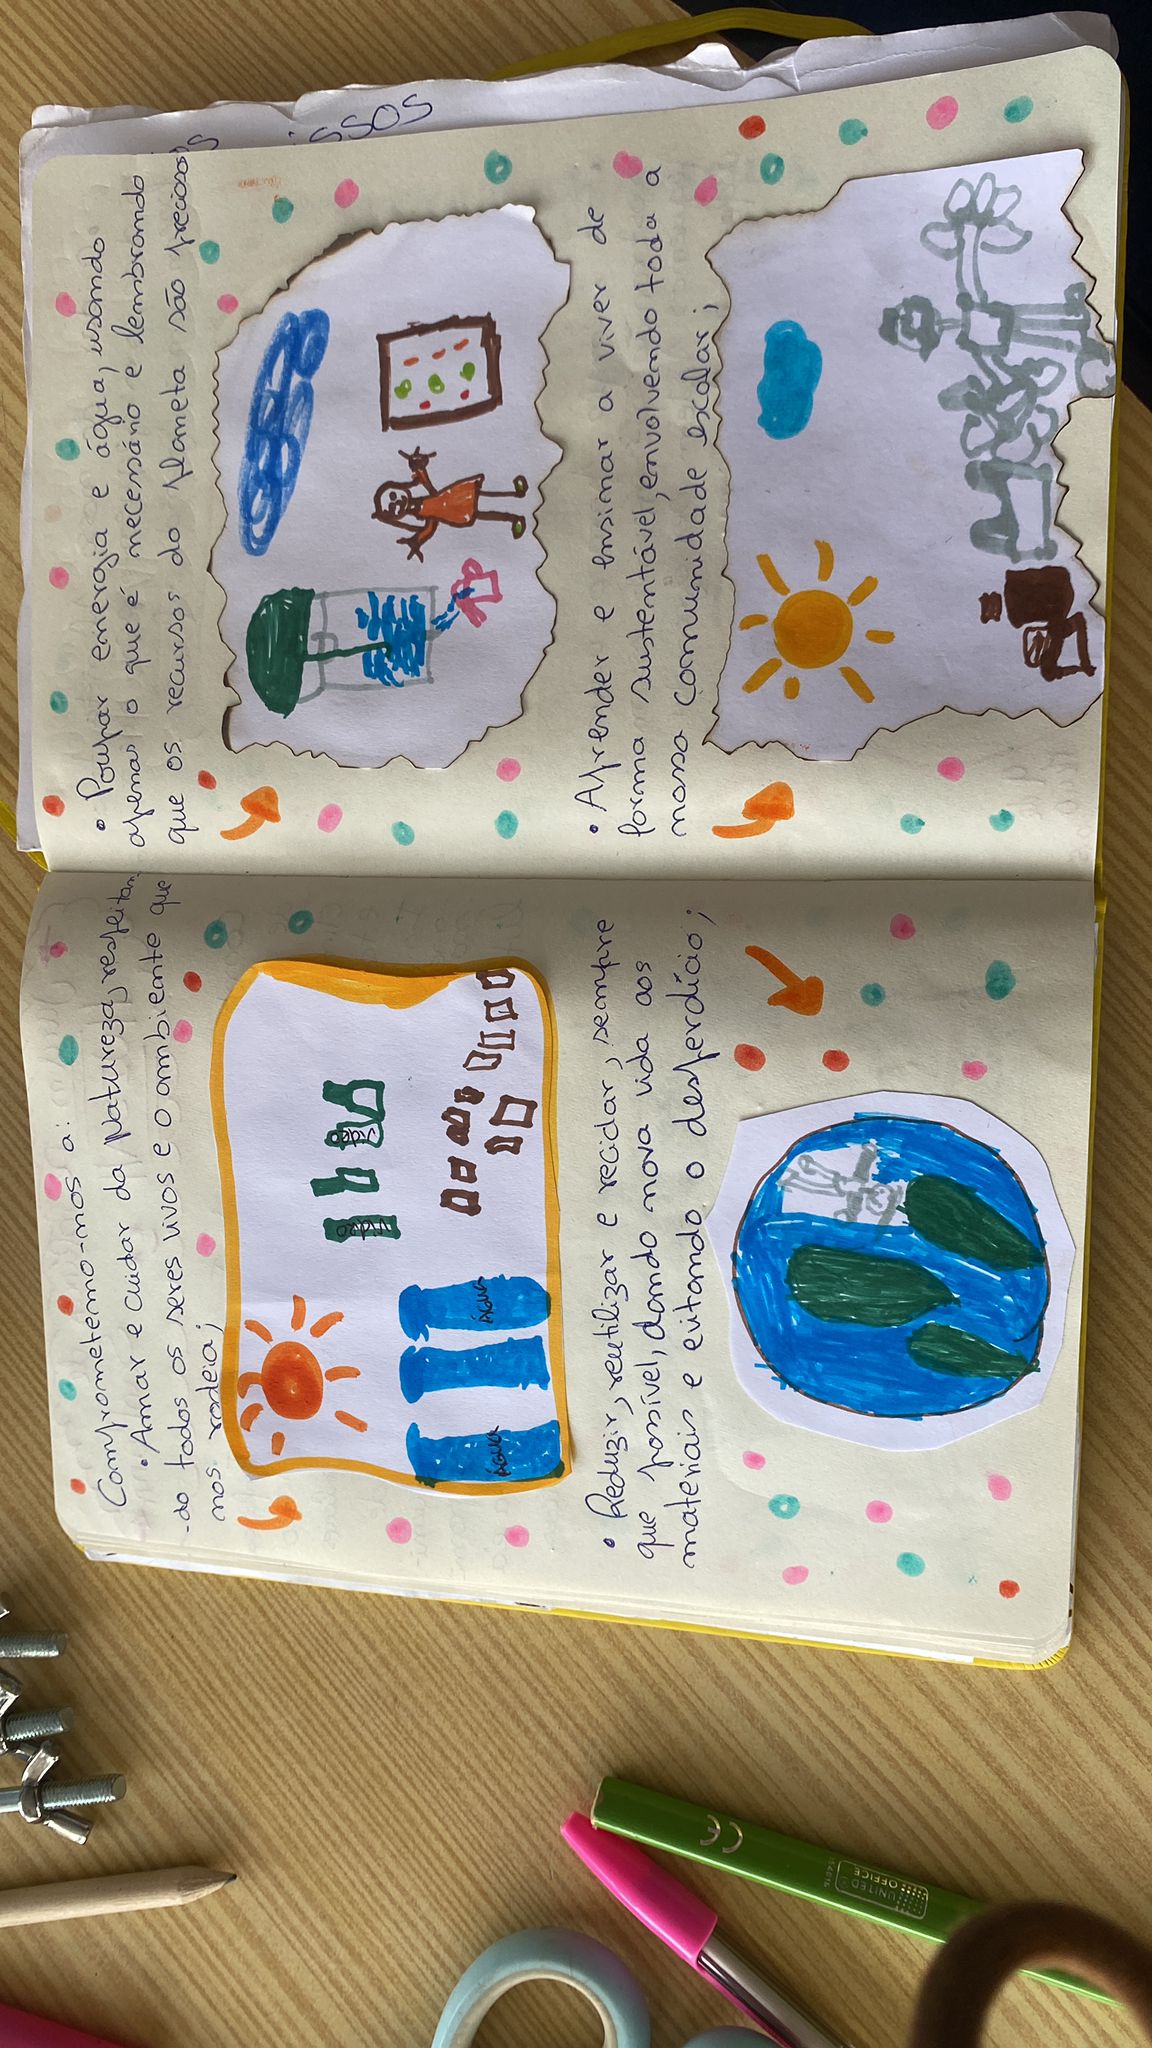 Comprometemo-nos a:
• Amar e cuidar da natureza, respeitan
-do todos os seres vivos e o ambiente que
nos rodeia;
VIDRO
VIDRO
ÁGUA
ÁGUA
• Reduzir, reutilizar e reciclar, sempre
que possível, dando nova vida aos
materiais e evitando o desperdício;
• Poupar energia e água, usando
apenas o que é necessário e lembrando
que os recursos do planeta são preciosos
• Aprender e ensinar a viver de
forma sustentável, envolvendo toda a
nossa comunidade escolar;
issos
UNITED
OFFICE
CE